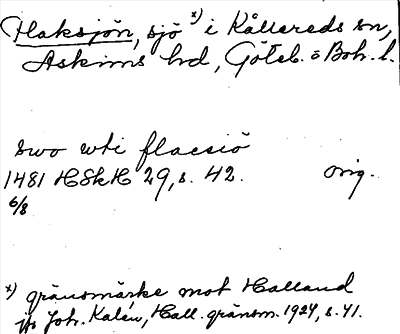 Flaksjön, sjö x) i Kållereds sn,
Askims hd, Göteb. o Boh. l.
swo wti flacsiö
1481 HSkH 29, s. 42. orig.
6/8
x) gränsmärke mot Halland
jfr Joh. Kalén, Hall. gränsm. 1924, s. 41.